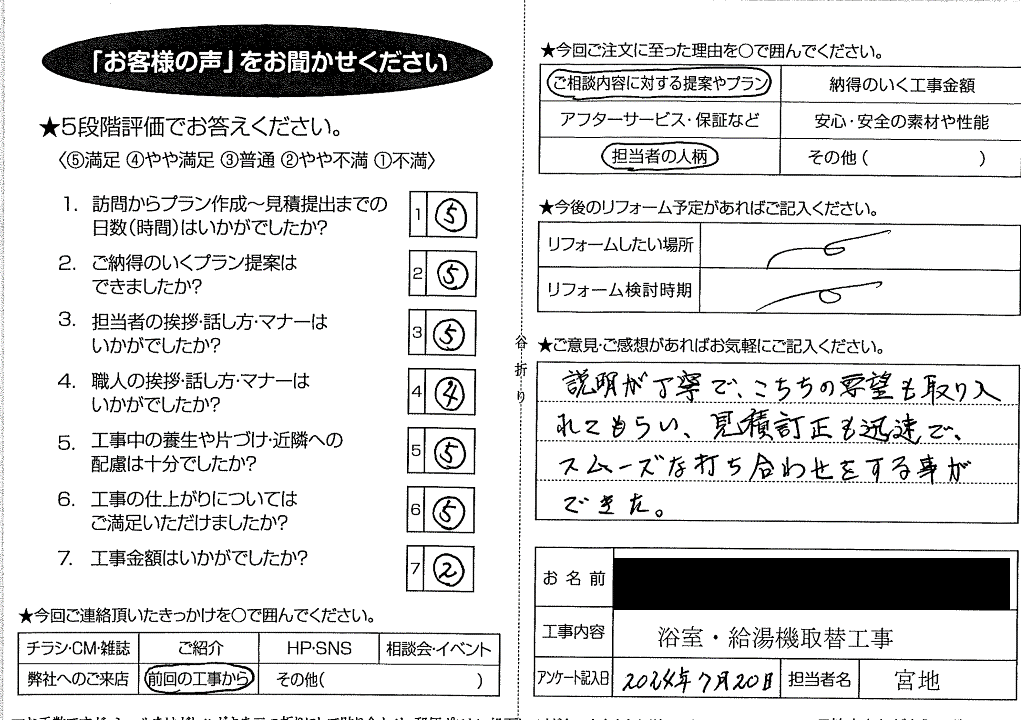 「お客様の声」をお聞かせください
★5段階評価でお答えください。
〈⑤満足 ④やや満足 ③普通 ②やや不満 ①不満〉
1. 訪問からプラン作成～見積提出までの
日数(時間)はいかがでしたか?
1 ⑤
2. ご納得のいくプラン提案は
できましたか?
2 ⑤
3. 担当者の挨拶・話し方・マナーは
いかがでしたか?
3 ⑤
4. 職人の挨拶・話し方・マナーは
いかがでしたか?
4 ④
5. 工事中の養生や片づけ・近隣への
配慮は十分でしたか?
5 ⑤
6. 工事の仕上がりについては
ご満足いただけましたか?
6 ⑤
7. 工事金額はいかがでしたか?
7 ②
★今回ご連絡頂いたきっかけを○で囲んでください。
チラシ・CM・雑誌 ご紹介 HP・SNS 相談会・イベント
弊社へのご来店 前回の工事から その他( )
谷折り
★今回ご注文に至った理由を○で囲んでください。
ご相談内容に対する提案やプラン 納得のいく工事金額
アフターサービス・保証など 安心・安全の素材や性能
担当者の人柄 その他( )
★今後のリフォーム予定があればご記入ください。
リフォームしたい場所
リフォーム検討時期
★ご意見・ご感想があればお気軽にご記入ください。
説明が丁寧で、こちらの要望も取り入
れてもらい、見積訂正も迅速で、
スムーズな打ち合わせをする事が
できた。
お名前
工事内容 浴室・給湯機取替工事
アンケート記入日 2024年7月20日 担当者名 宮地